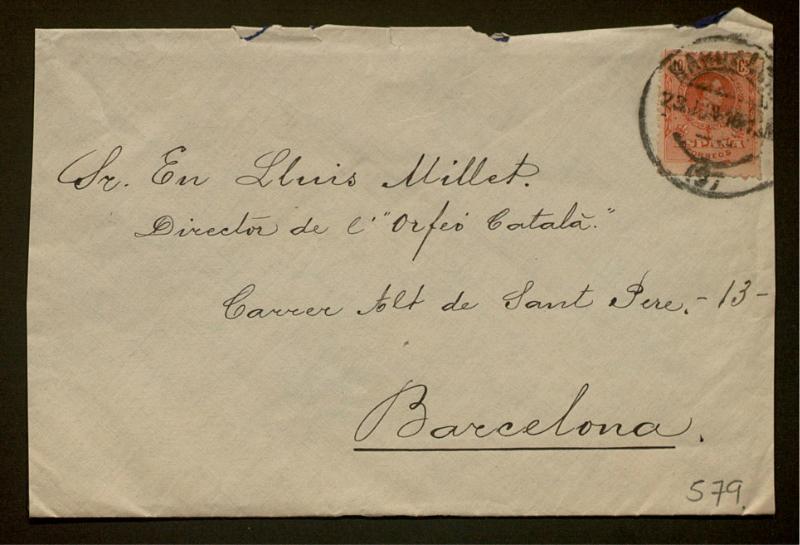 Sr. En Lluis Millet.
Directór de l' "Orfeó Català."
Carrer Alt de Sant Pere. - 13 -
Barcelona.
579
CORREOS
(9)